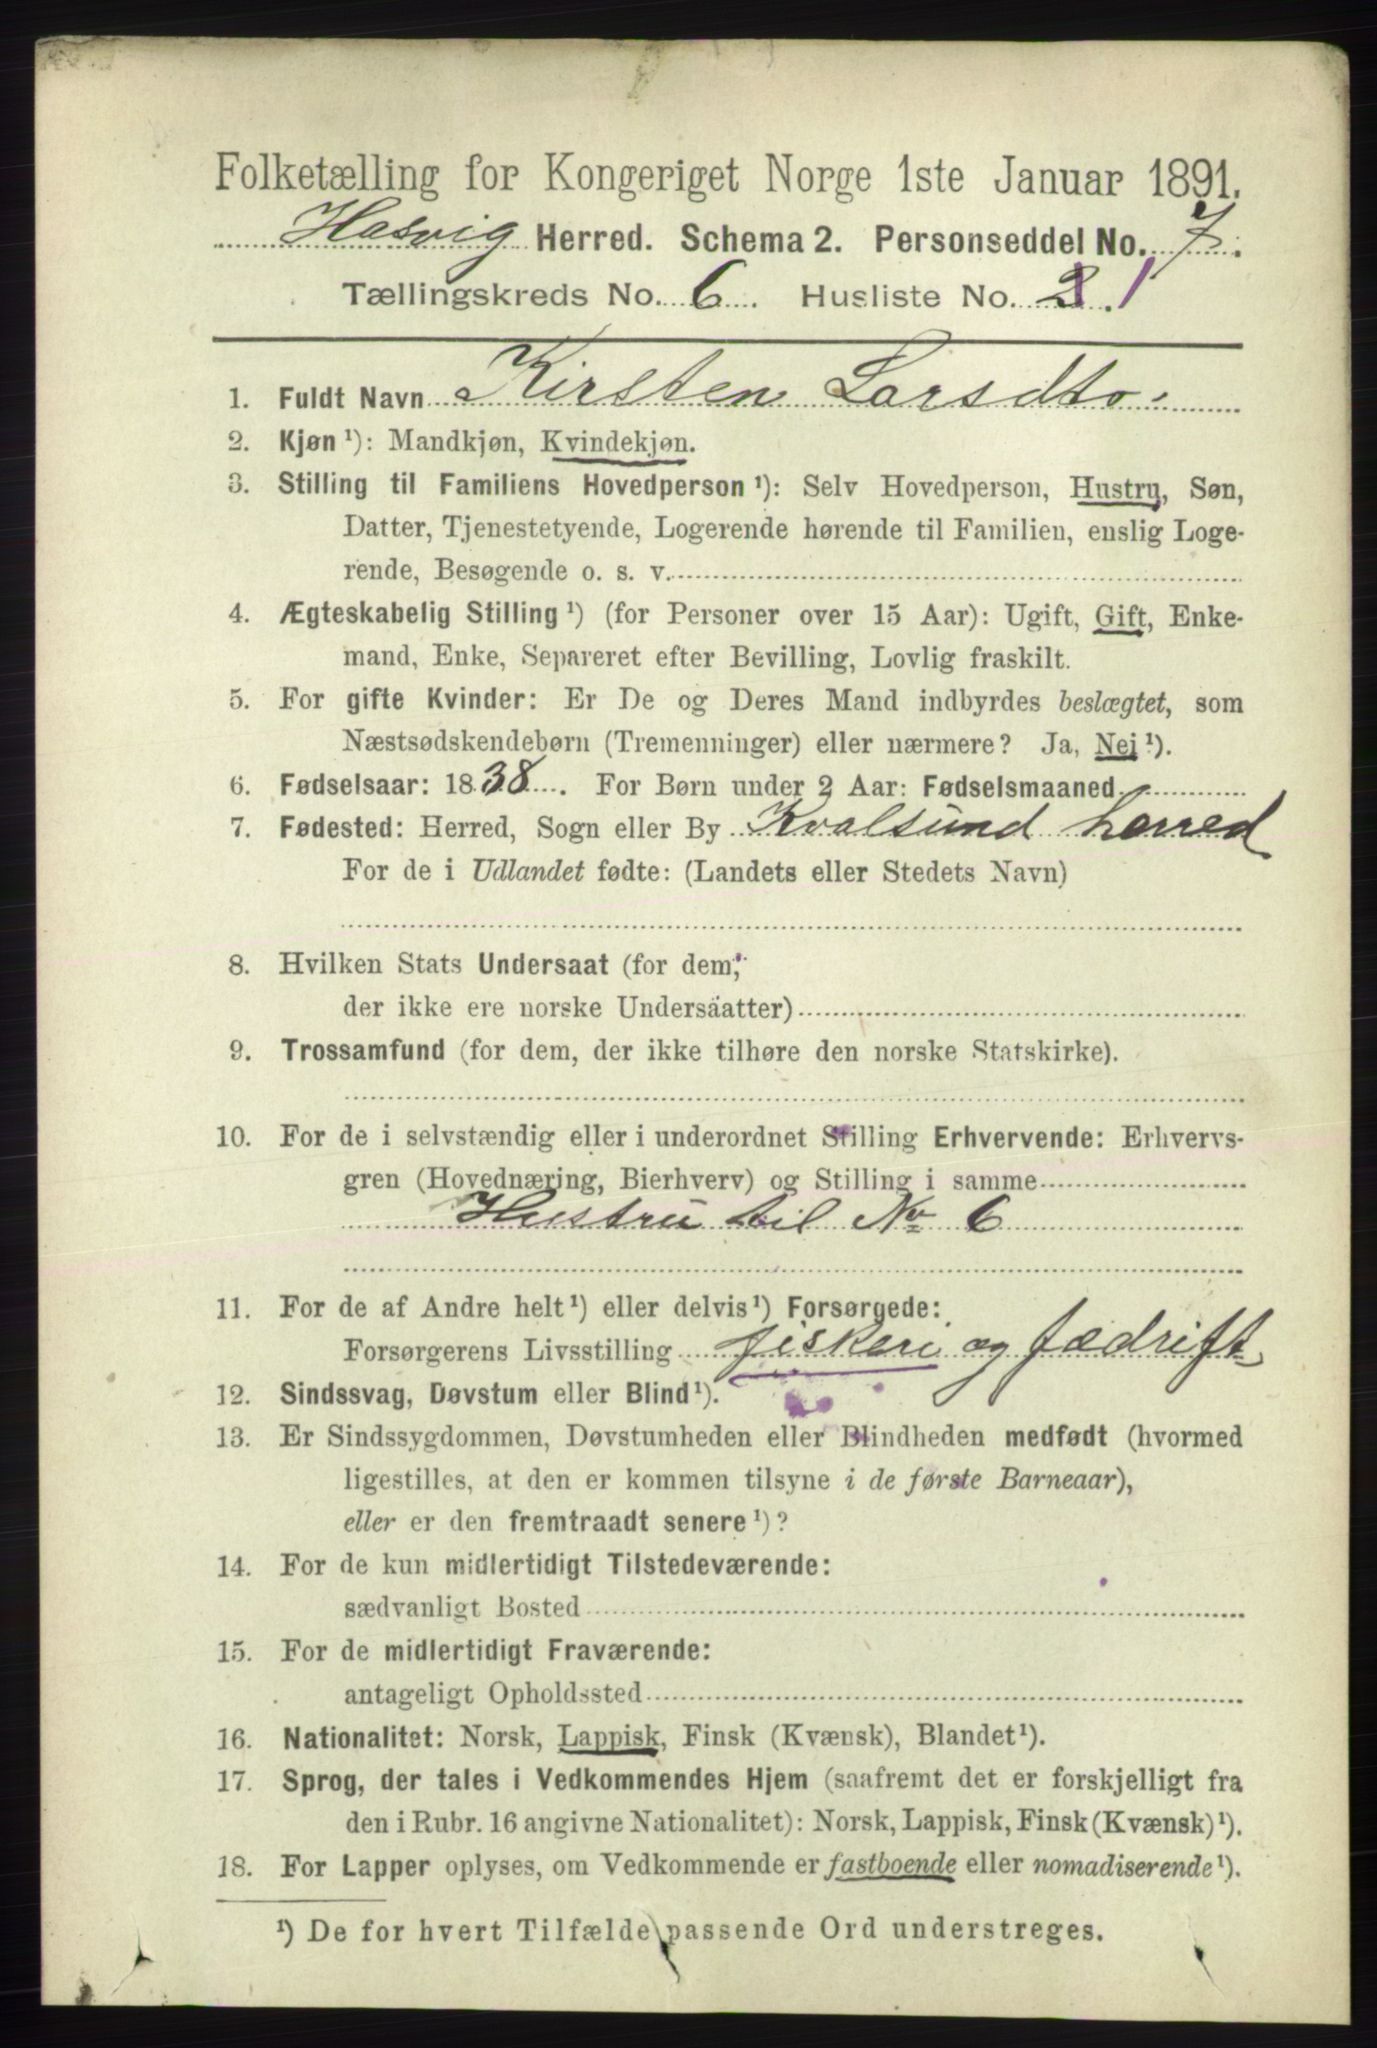 Folketælling for Kongeriget Norge 1ste Januar 1891.
Hasvig Herred. Schema 2. Personseddel No. 7.
Tællingskreds No. 6. Husliste No. 1
1. Fuldt Navn Kirsten Larsdtr.
2. Kjøn ¹): Mandkjøn, Kvindekjøn.
3. Stilling til Familiens Hovedperson ¹): Selv Hovedperson, Hustru, Søn,
Datter, Tjenestetyende, Logerende hørende til Familien, enslig Loge-
rende, Besøgende o. s. v.
4. Ægteskabelig Stilling ¹) (for Personer over 15 Aar): Ugift, Gift, Enke-
mand, Enke, Separeret efter Bevilling, Lovlig fraskilt.
5. For gifte Kvinder: Er De og Deres Mand indbyrdes beslægtet, som
Næstsødskendebørn (Tremenninger) eller nærmere? Ja, Nej ¹).
6. Fødselsaar: 1838. For Børn under 2 Aar: Fødselsmaaned
7. Fødested: Herred, Sogn eller By Kvalsund herred
For de i Udlandet fødte: (Landets eller Stedets Navn)
8. Hvilken Stats Undersaat (for dem,
der ikke ere norske Undersaatter)
9. Trossamfund (for dem, der ikke tilhøre den norske Statskirke).
10. For de i selvstændig eller i underordnet Stilling Erhvervende: Erhvervs-
gren (Hovednæring, Bierhverv) og Stilling i samme
Hustru til No 6
11. For de af Andre helt ¹) eller delvis ¹) Forsørgede:
Forsørgerens Livsstilling fiskeri og fædrift
12. Sindssvag, Døvstum eller Blind ¹).
13. Er Sindssygdommen, Døvstumheden eller Blindheden medfødt (hvormed
ligestilles, at den er kommen tilsyne i de første Barneaar),
eller er den fremtraadt senere ¹)?
14. For de kun midlertidigt Tilstedeværende:
sædvanligt Bosted
15. For de midlertidigt Fraværende:
antageligt Opholdssted
16. Nationalitet: Norsk, Lappisk, Finsk (Kvænsk), Blandet ¹).
17. Sprog, der tales i Vedkommendes Hjem (saafremt det er forskjelligt fra
den i Rubr. 16 angivne Nationalitet): Norsk, Lappisk, Finsk (Kvænsk) ¹).
18. For Lapper oplyses, om Vedkommende er fastboende eller nomadiserende ¹).
¹) De for hvert Tilfælde passende Ord understreges.